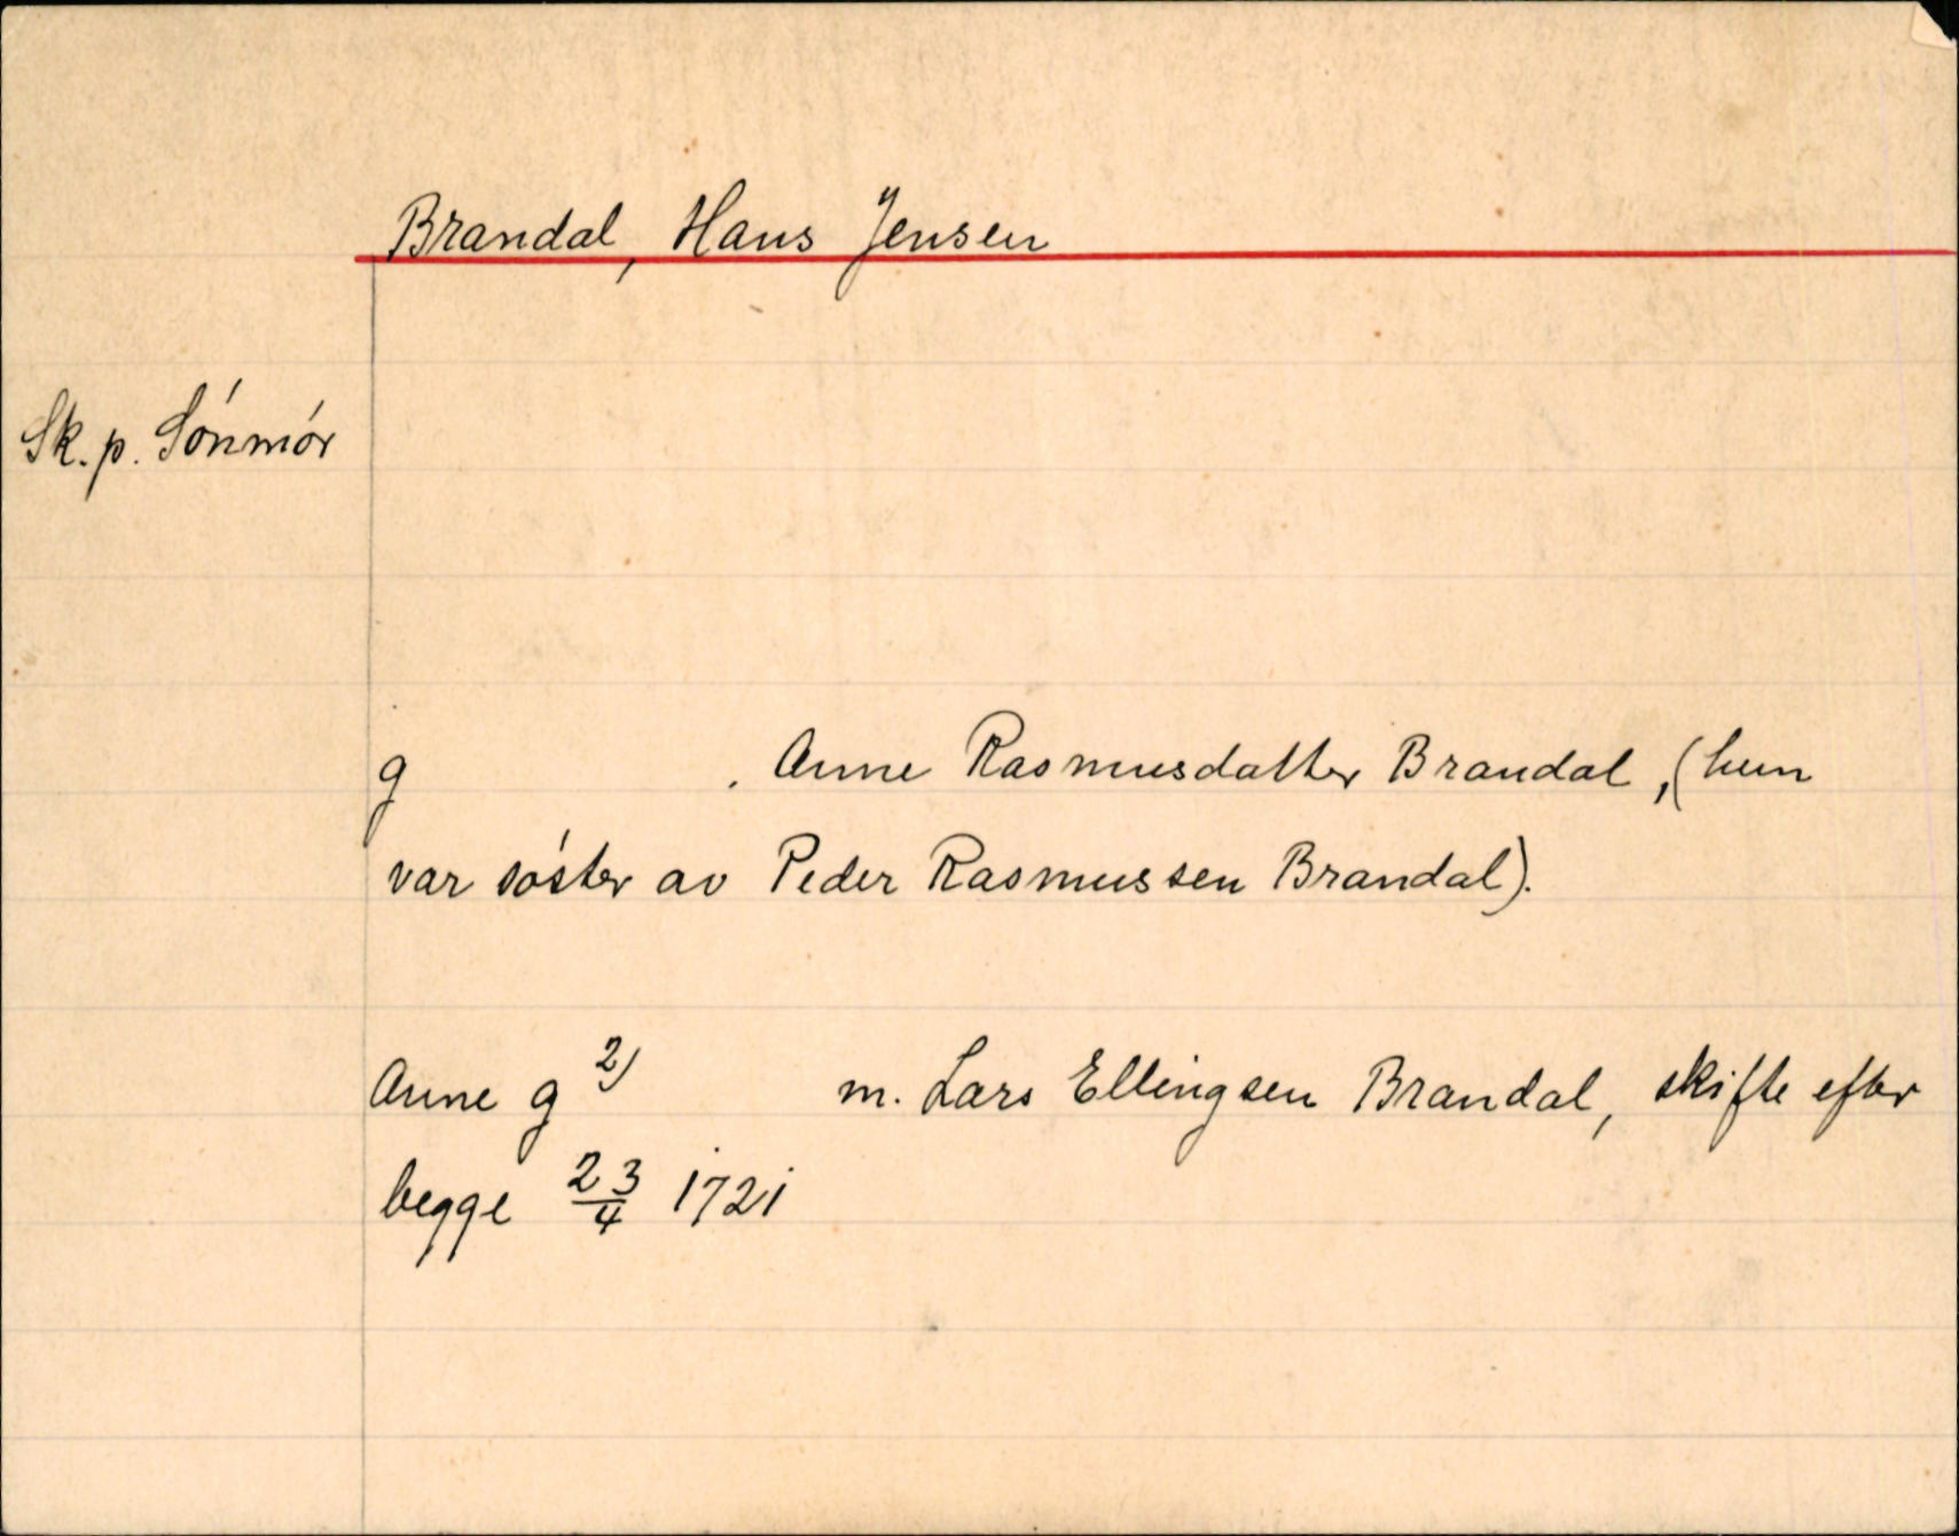 Brandal, Hans Jensen
Sk. p. Sónmór
g . Anne Rasmusdatter Brandal, (hun
var sóster av Peder Rasmussen Brandal).
Anne g 2) m. Lars Ellingsen Brandal, skifte efter
begge 23/4 1721